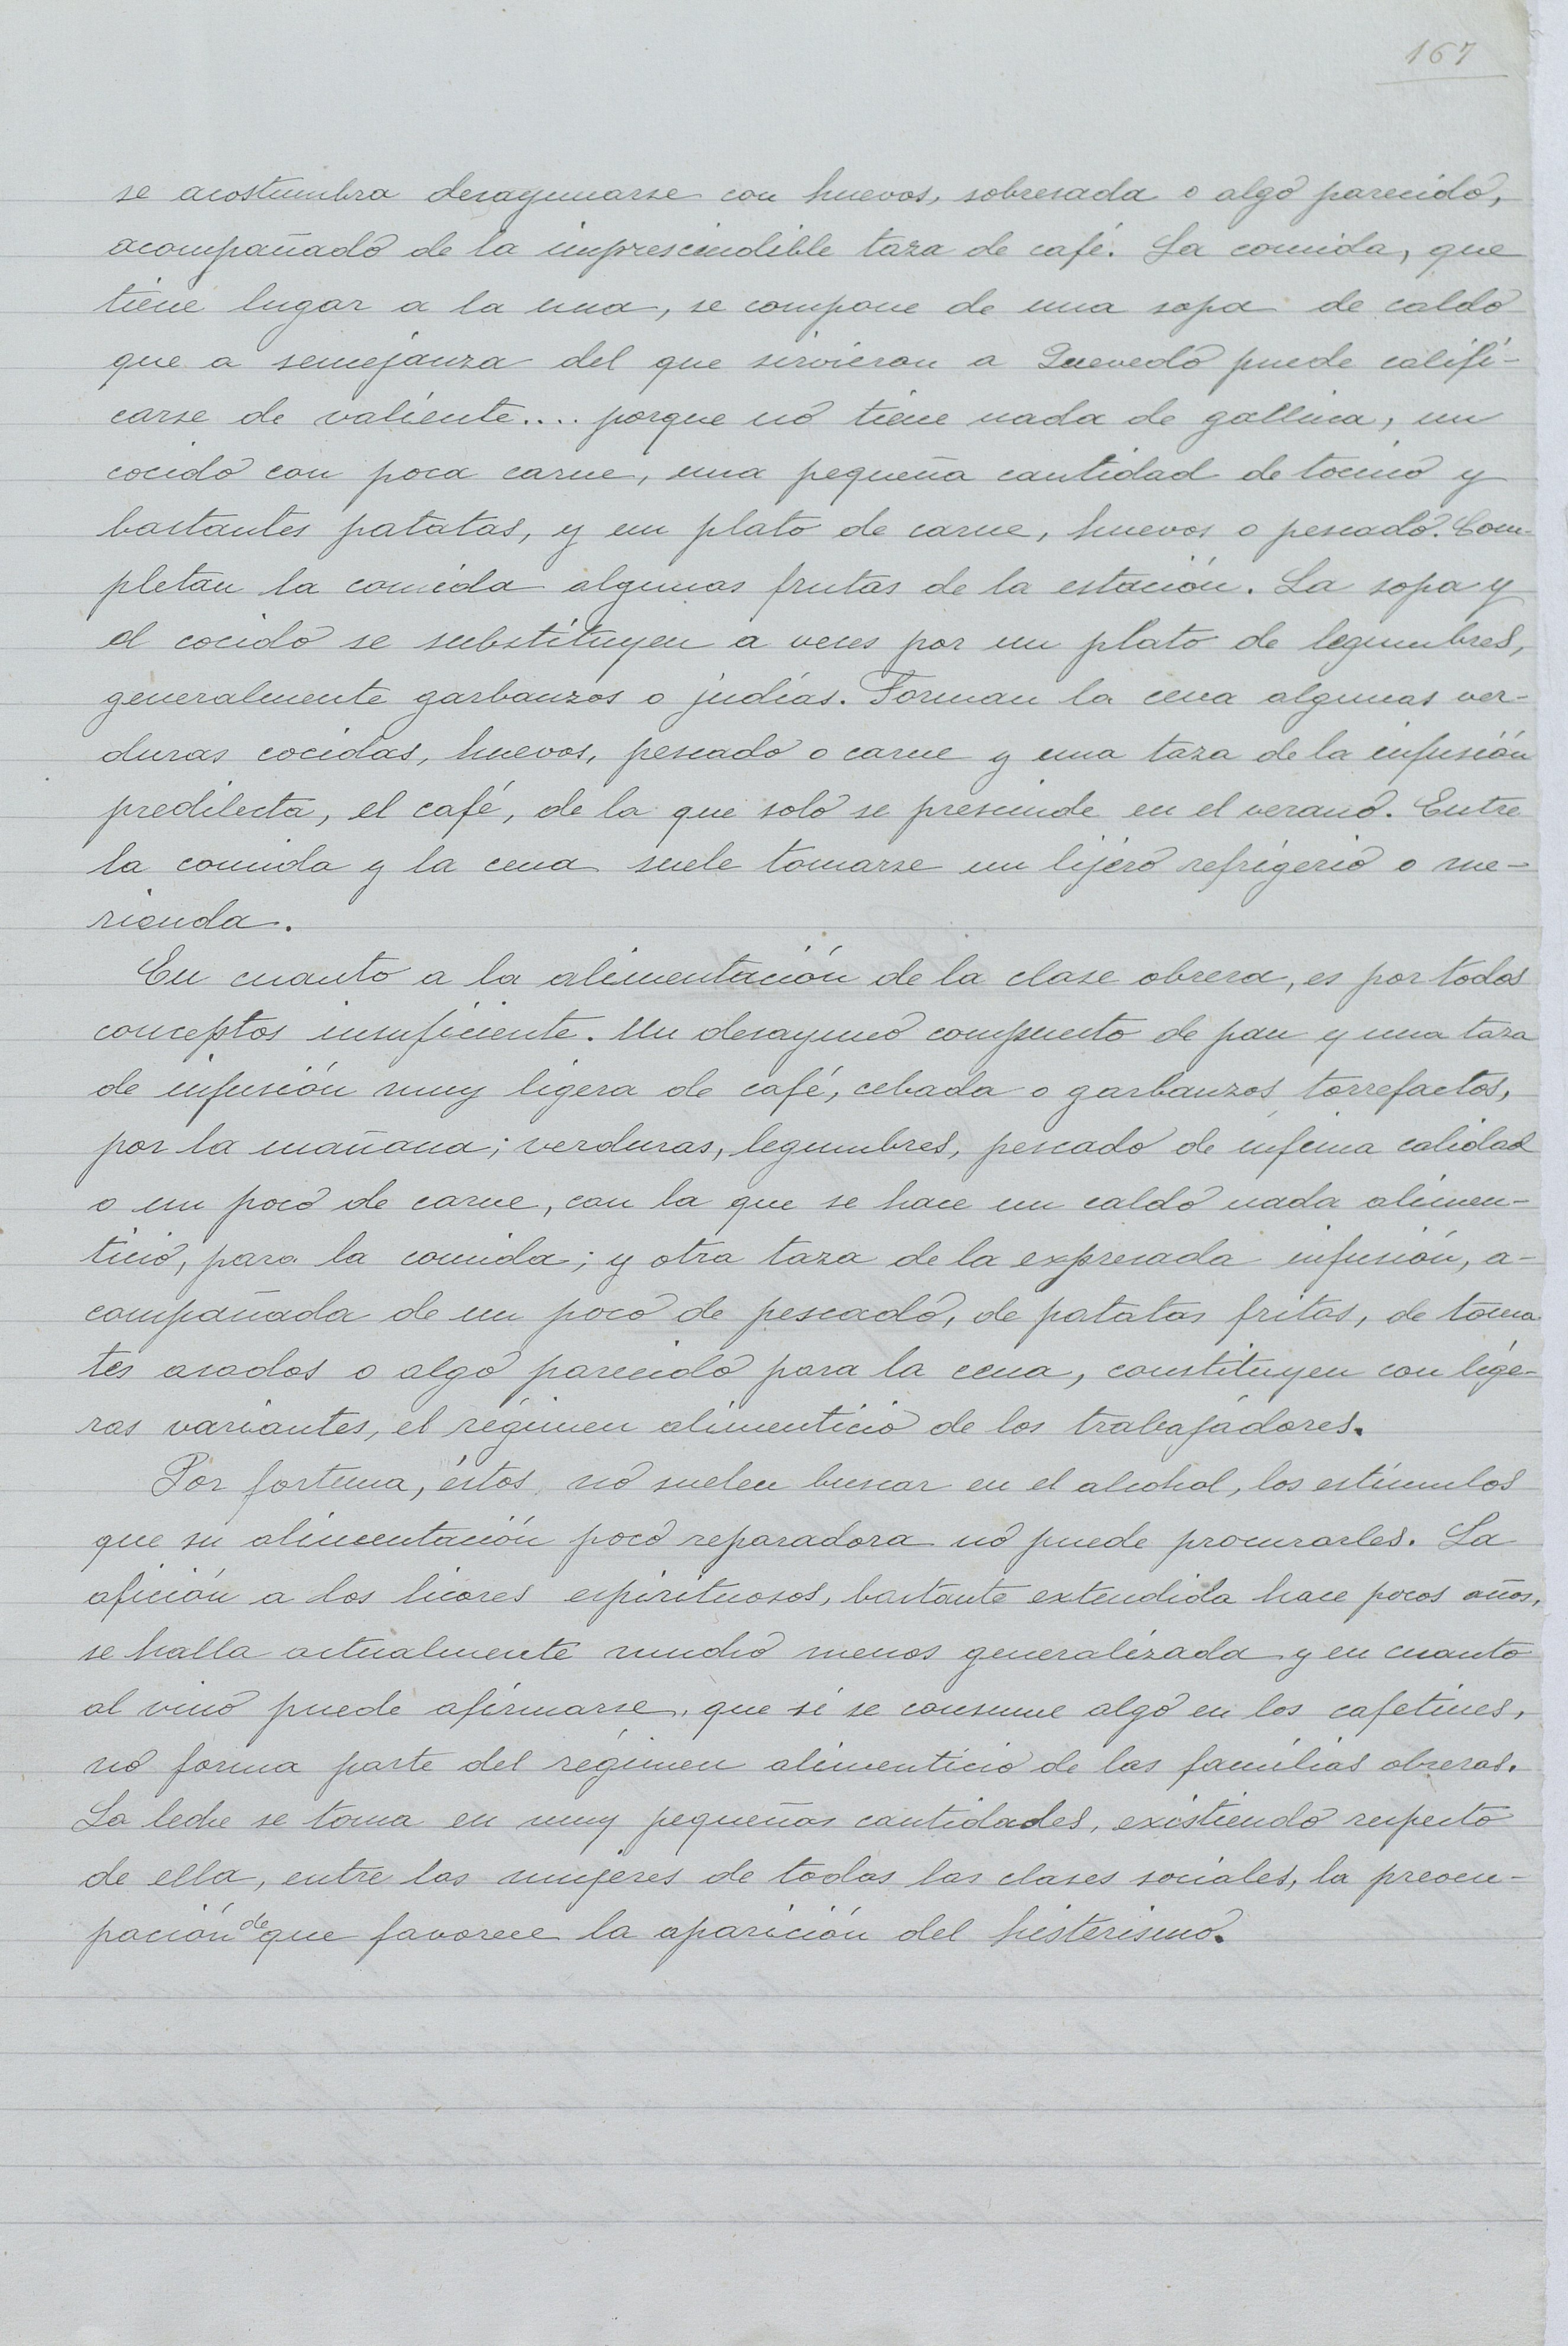 167
se acostumbra desayunarse con huevos, sobresada o algo parecido,
acompañado de la imprescindible taza de café. La comida, que
tiene lugar a la una, se compone de una sopa de caldo
que a semejanza del que sirvieron a Quevedo puede califi-
carse de valiente.... porque no tiene nada de gallina, un
cocido con poca carne, una pequeña cantidad de tocino y
bastantes patatas, y un plato de carne, huevos o pescado. Com-
pletan la comida algunas frutas de la estación. La sopa y
el cocido se substituyen a veces por un plato de legumbres,
generalmente garbanzos o judías. Forman la cena algunas ver-
duras cocidas, huevos, pescado o carne y una taza de la infusión
predilecta, el café, de la que solo se prescinde en el verano. Entre
la comida y la cena suele tomarse un lijero refrigerio o me-
rienda.
En cuanto a la alimentación de la clase obrera, es por todos
conceptos insuficiente. Un desayuno compuesto de pan y una taza
de infusión muy ligera de café, cebada o garbanzos torrefactos,
por la mañana; verduras, legumbres, pescado de ínfima calidad
o un poco de carne, con la que se hace un caldo nada alimen-
ticio, para la comida; y otra taza de la expresada infusión, a-
compañada de un poco de pescado, de patatas fritas, de toma
tes asados o algo parecido para la cena, constituyen con lige-
ras variantes, el régimen alimenticio de los trabajadores.
Por fortuna, éstos, no suelen buscar en el alcohol, los estímulos
que su alimentación poco reparadora no puede procurarles. La
afición a los licores espirituosos, bastante extendida hace pocos años,
se halla actualmente mucho menos generalizada y en cuanto
al vino puede afirmarse, que si se consume algo en los cafetines,
no forma parte del régimen alimenticio de las familias obreras.
La leche se toma en muy pequeñas cantidades, existiendo respecto
de ella, entre las mujeres de todas las clases sociales, la preocu-
pación de que favorece la aparición del histerismo.